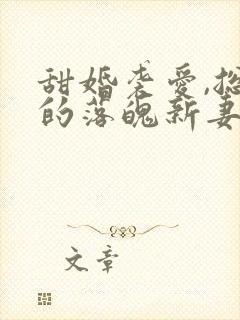 甜婚袭爱,总
的落魄新妻
文章